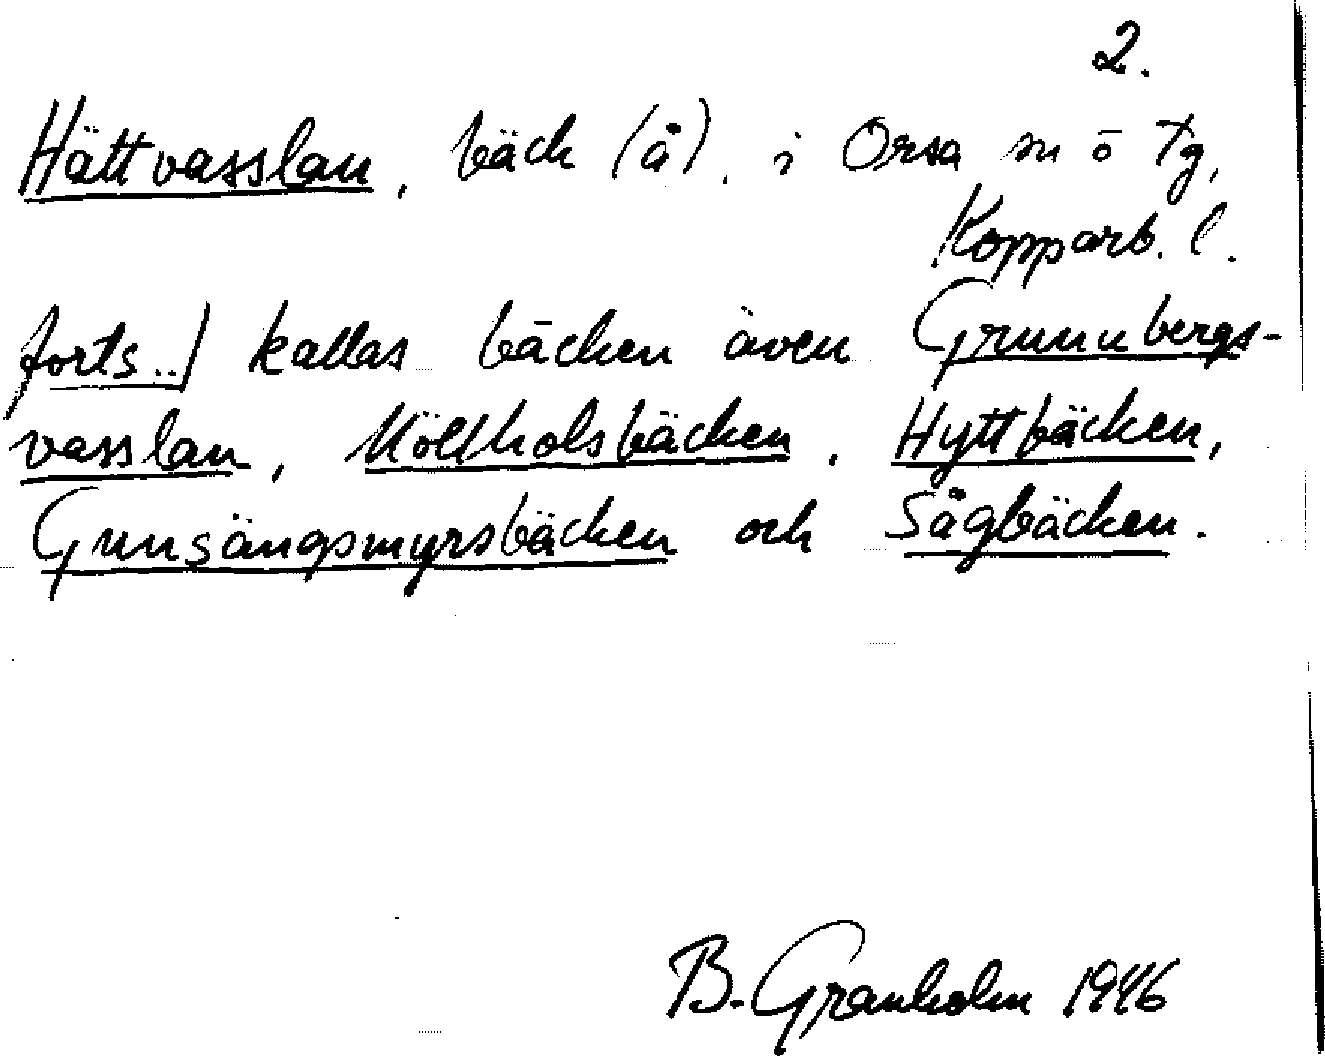 2.
Hättvasslan, bäck (å), i Orsa sn ö tg,
Kopparb. l.
forts..] kallas bäcken även Grunubergs-
vasslan, Köllholsbäcken, Hyttbäcken,
Grunsängsmyrsbäcken och Sågbäcken.
B. Granholm 1946